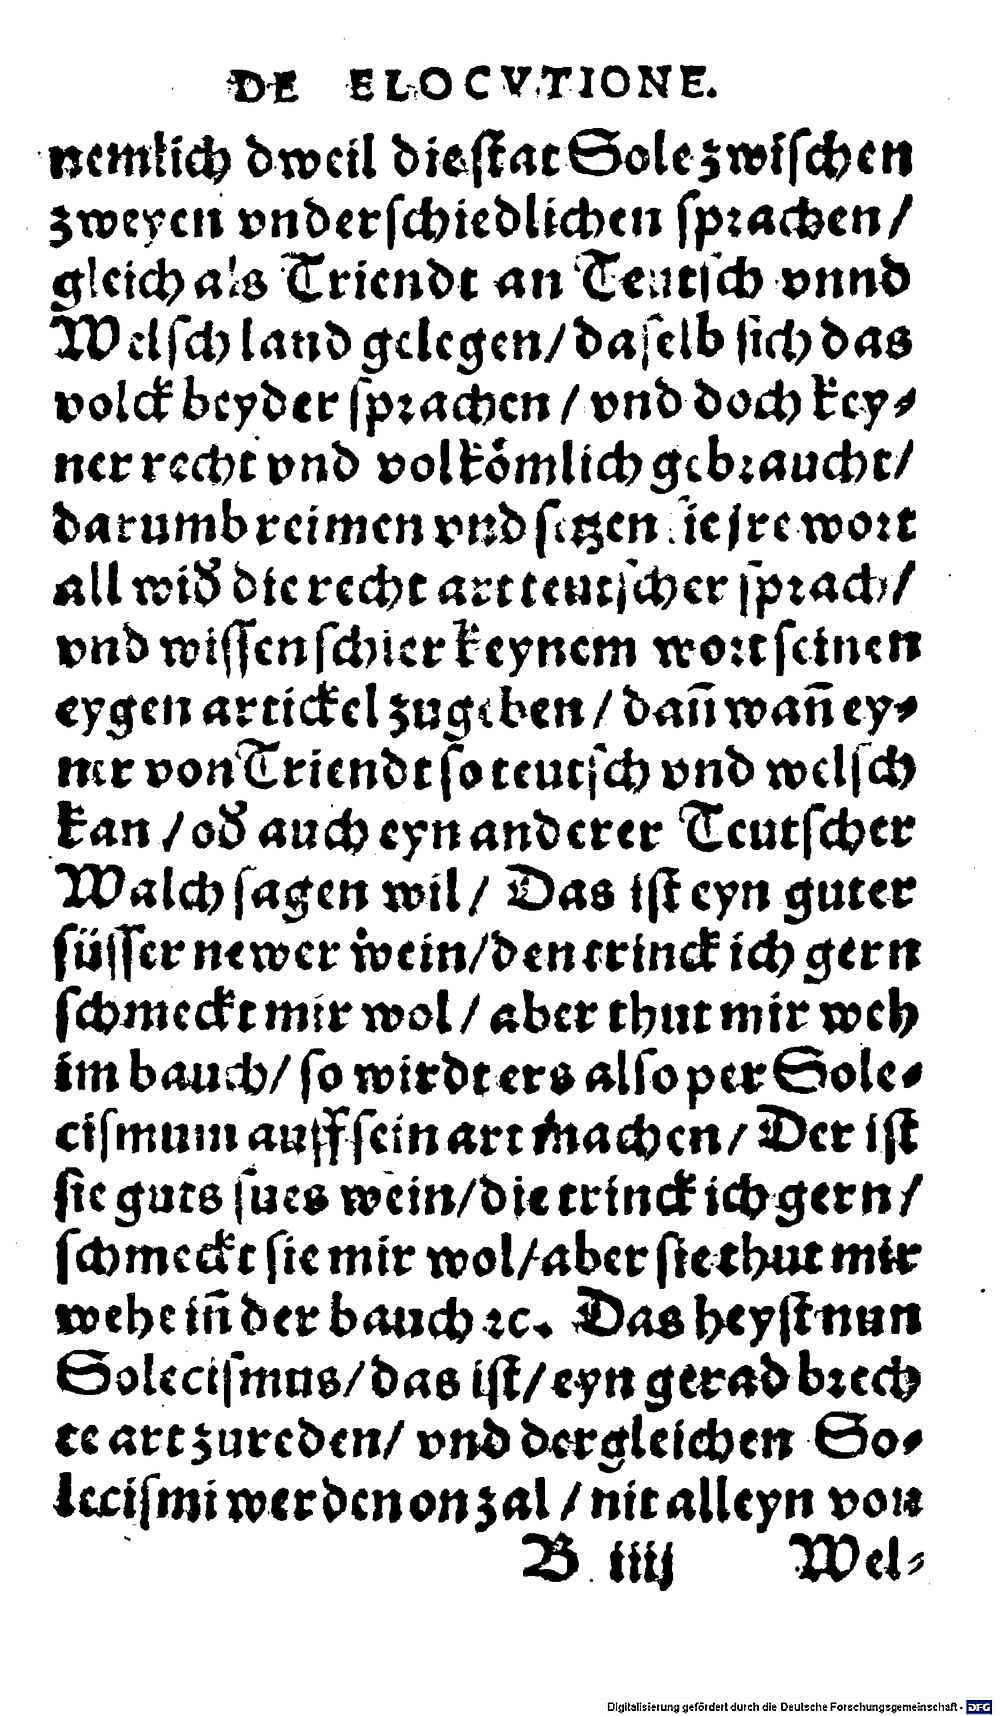 DE ELOCVTIONE.
nemlich dweil die stat Sole zwischen
zweyen vnderschiedlichen sprachen /
gleich als Triendt an Teutsch vnnd
Welsch land gelegen / daselb sich das
volck beyder sprachen / vnd doch key⸗
ner recht vnd volkömlich gebraucht /
darumb reimen vnd setzen sie jre wort
all wid᷑ die recht art teutscher sprach /
vnd wissen schier keynem wort seinen
eygen artickel zugeben / dañ wañ ey⸗
ner von Triendt so teutsch vnd welsch
kan / od᷑ auch eyn anderer Teutscher
Walch sagen wil / Das ist eyn guter
süsser newer wein / den trinck ich gern
schmeckt mir wol / aber thut mir weh
im bauch / so wirdt ers also per Sole⸗
cismum auff sein art machen / Der ist
sie guts sues wein / die trinck ich gern /
schmeckt sie mir wol / aber sie thut mir
wehe iñ der bauch ꝛc. Das heyst nun
Solecismus / das ist / eyn gerad brech
te art zureden / vnd dergleichen So⸗
lecismi werden on zal / nit alleyn von
B iiij Wel⸗
Digitalisierung gefördert durch die Deutsche Forschungsgemeinschaft - DFG